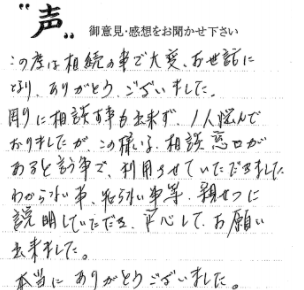 "声"
御意見・感想をお聞かせ下さい
この度は相続の事で大変、お世話に
なり、ありがとうございました。
周りに相談する事も出来ず、1人悩んで
おりましたが、この様な、相談窓口が
あると言う事で、利用させていただきました
わからない事、知らない事等、親せつに
説明していただき、安心して、お願い
出来ました。
本当にありがとうございました。